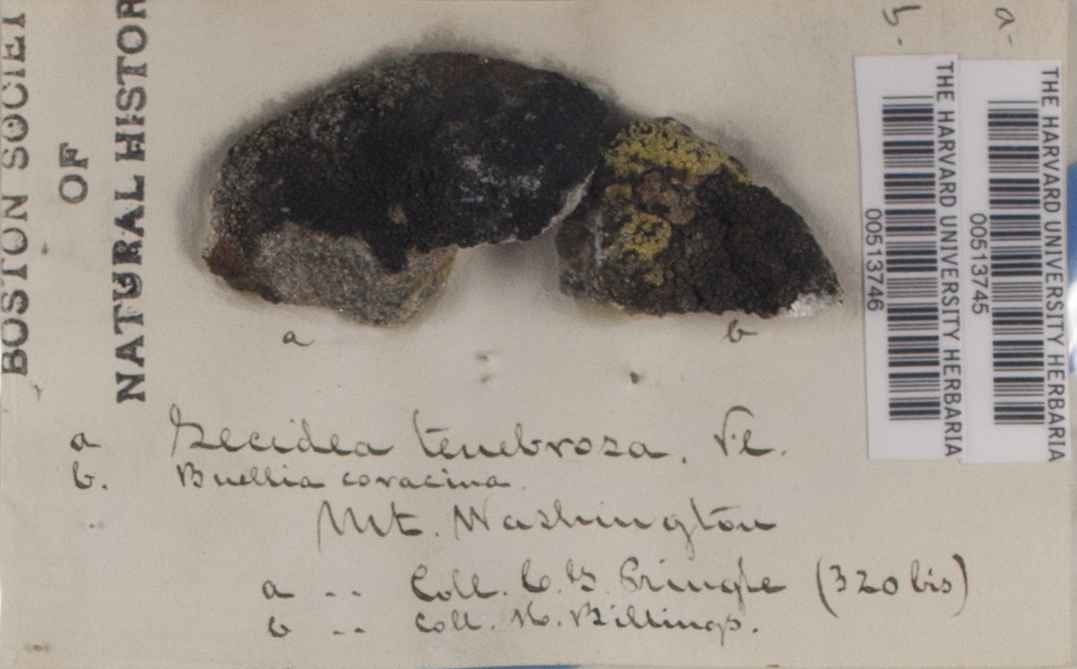 BOSTON SOCIET
OF
NATURAL HISTOR
b.
a-
THE HARVARD UNIVERSITY HERBARIA
00513746
THE HARVARD UNIVERSITY HERBARIA
00513745
a
b
a Lecidea tenebrosa. Fl.
b. Buellia coracina.
Mt. Washington
a .. Coll. C. G. Pringle (320 bis)
b .. Coll. H. Billings.